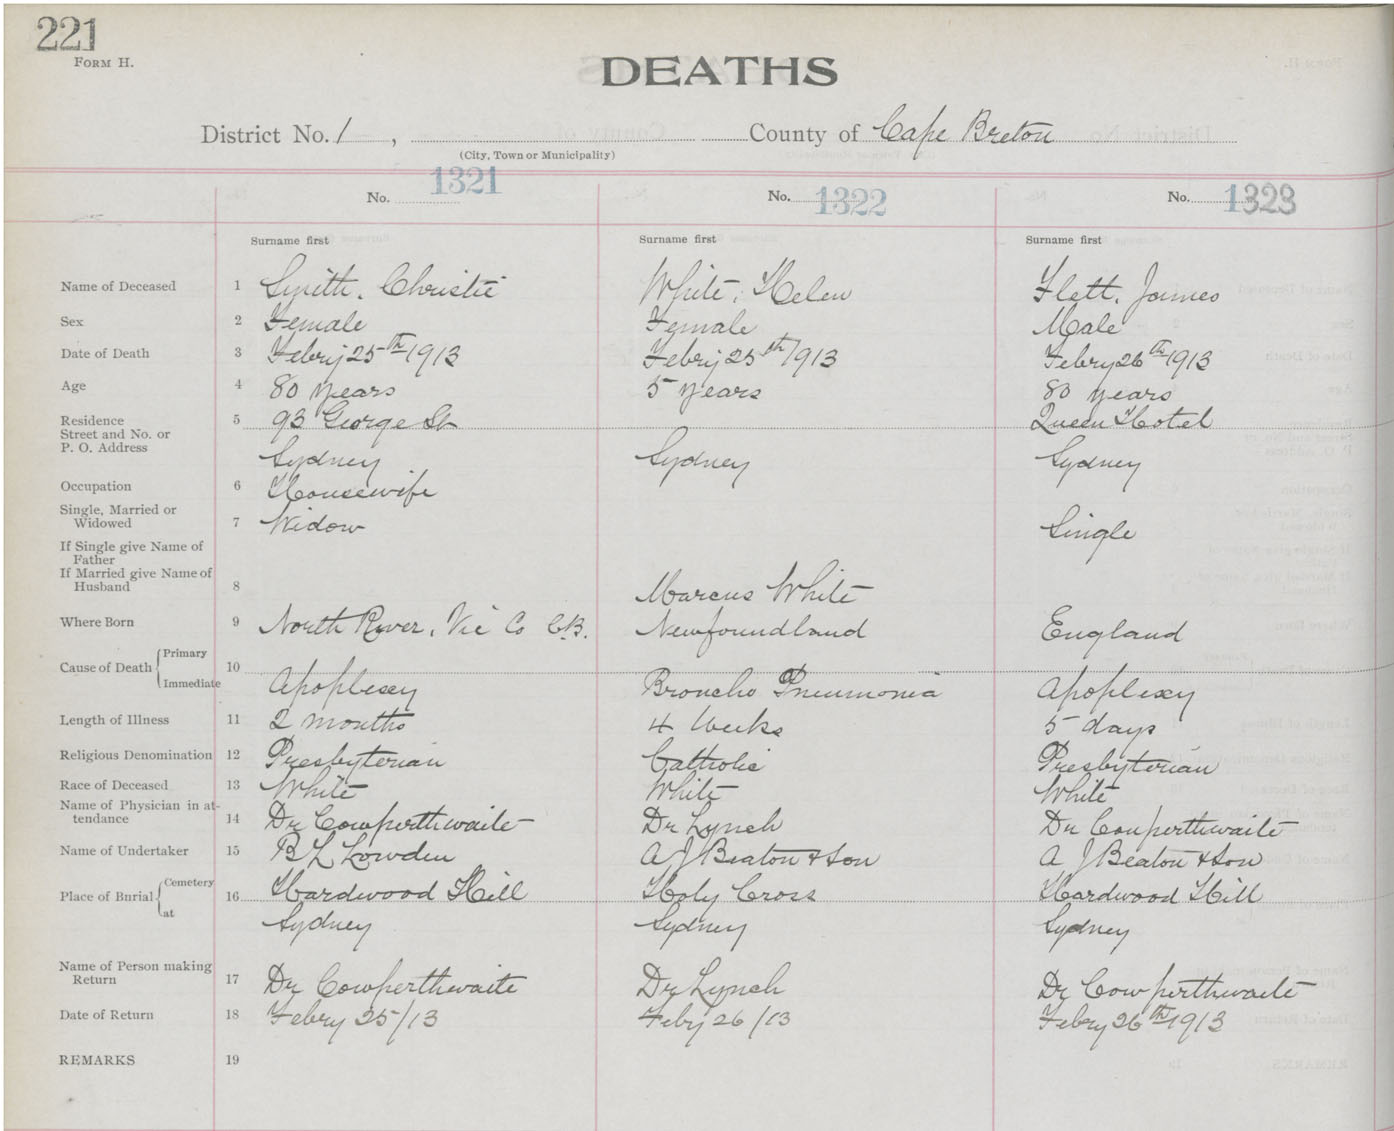 221
FORM H.
DEATHS
District No. 1 , County of Cape Breton
(City, Town or Municipality)
No. 1321 No. 1322 No. 1323
Surname first Surname first Surname first
Name of Deceased 1 Smith, Christie White, Helen Flett, James
Sex 2 Female Female Male
Date of Death 3 Febry 25th 1913 Febry 25th 1913 Febry 26th 1913
Age 4 80 years 5 years 80 years
Residence 5 93 George St Queen Hotel
Street and No. or
P. O. Address Sydney Sydney Sydney
Occupation 6 Housewife
Single, Married or
Widowed 7 Widow Single
If Single give Name of
Father
If Married give Name of
Husband 8 Marcus White
Where Born 9 North River, Vic Co C.B. Newfoundland England
Cause of Death Primary 10
Immediate Apoplexy Broncho Pneumonia Apoplexy
Length of Illness 11 2 months 4 Weeks 5 days
Religious Denomination 12 Presbyterian Catholic Presbyterian
Race of Deceased 13 White White White
Name of Physician in at-
tendance 14 Dr Cowperthwaite Dr Lynch Dr Cowperthwaite
Name of Undertaker 15 B L Lowden A J Beaton & Son A J Beaton & Son
Place of Burial Cemetery 16 Hardwood Hill Holy Cross Hardwood Hill
at Sydney Sydney Sydney
Name of Person making
Return 17 Dr Cowperthwaite Dr Lynch Dr Cowperthwaite
Date of Return 18 Febry 25/13 Febry 26/13 Febry 26th 1913
REMARKS 19